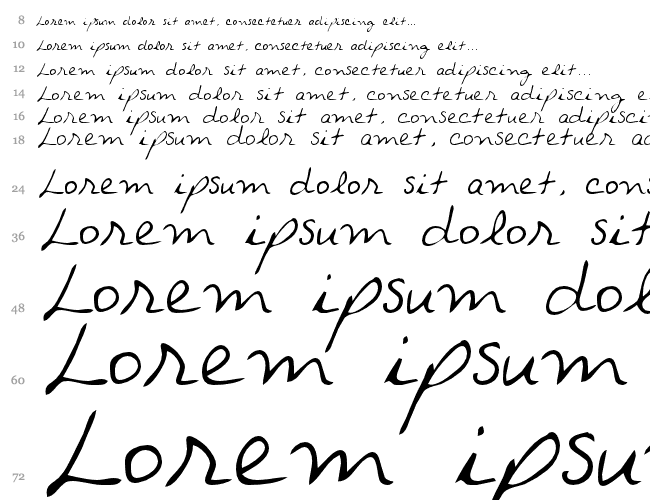 8 Lorem ipsum dolor sit amet, consectetuer adipiscing elit...
10 Lorem ipsum dolor sit amet, consectetuer adipiscing elit...
12 Lorem ipsum dolor sit amet, consectetuer adipiscing elit...
14 Lorem ipsum dolor sit amet, consectetuer adipiscing e
16 Lorem ipsum dolor sit amet, consectetuer adipisci
18 Lorem ipsum dolor sit amet, consectetuer ad
24 Lorem ipsum dolor sit amet, cons
36 Lorem ipsum dolor sit
48 Lorem ipsum dol
60 Lorem ipsum
72 Lorem ipsu